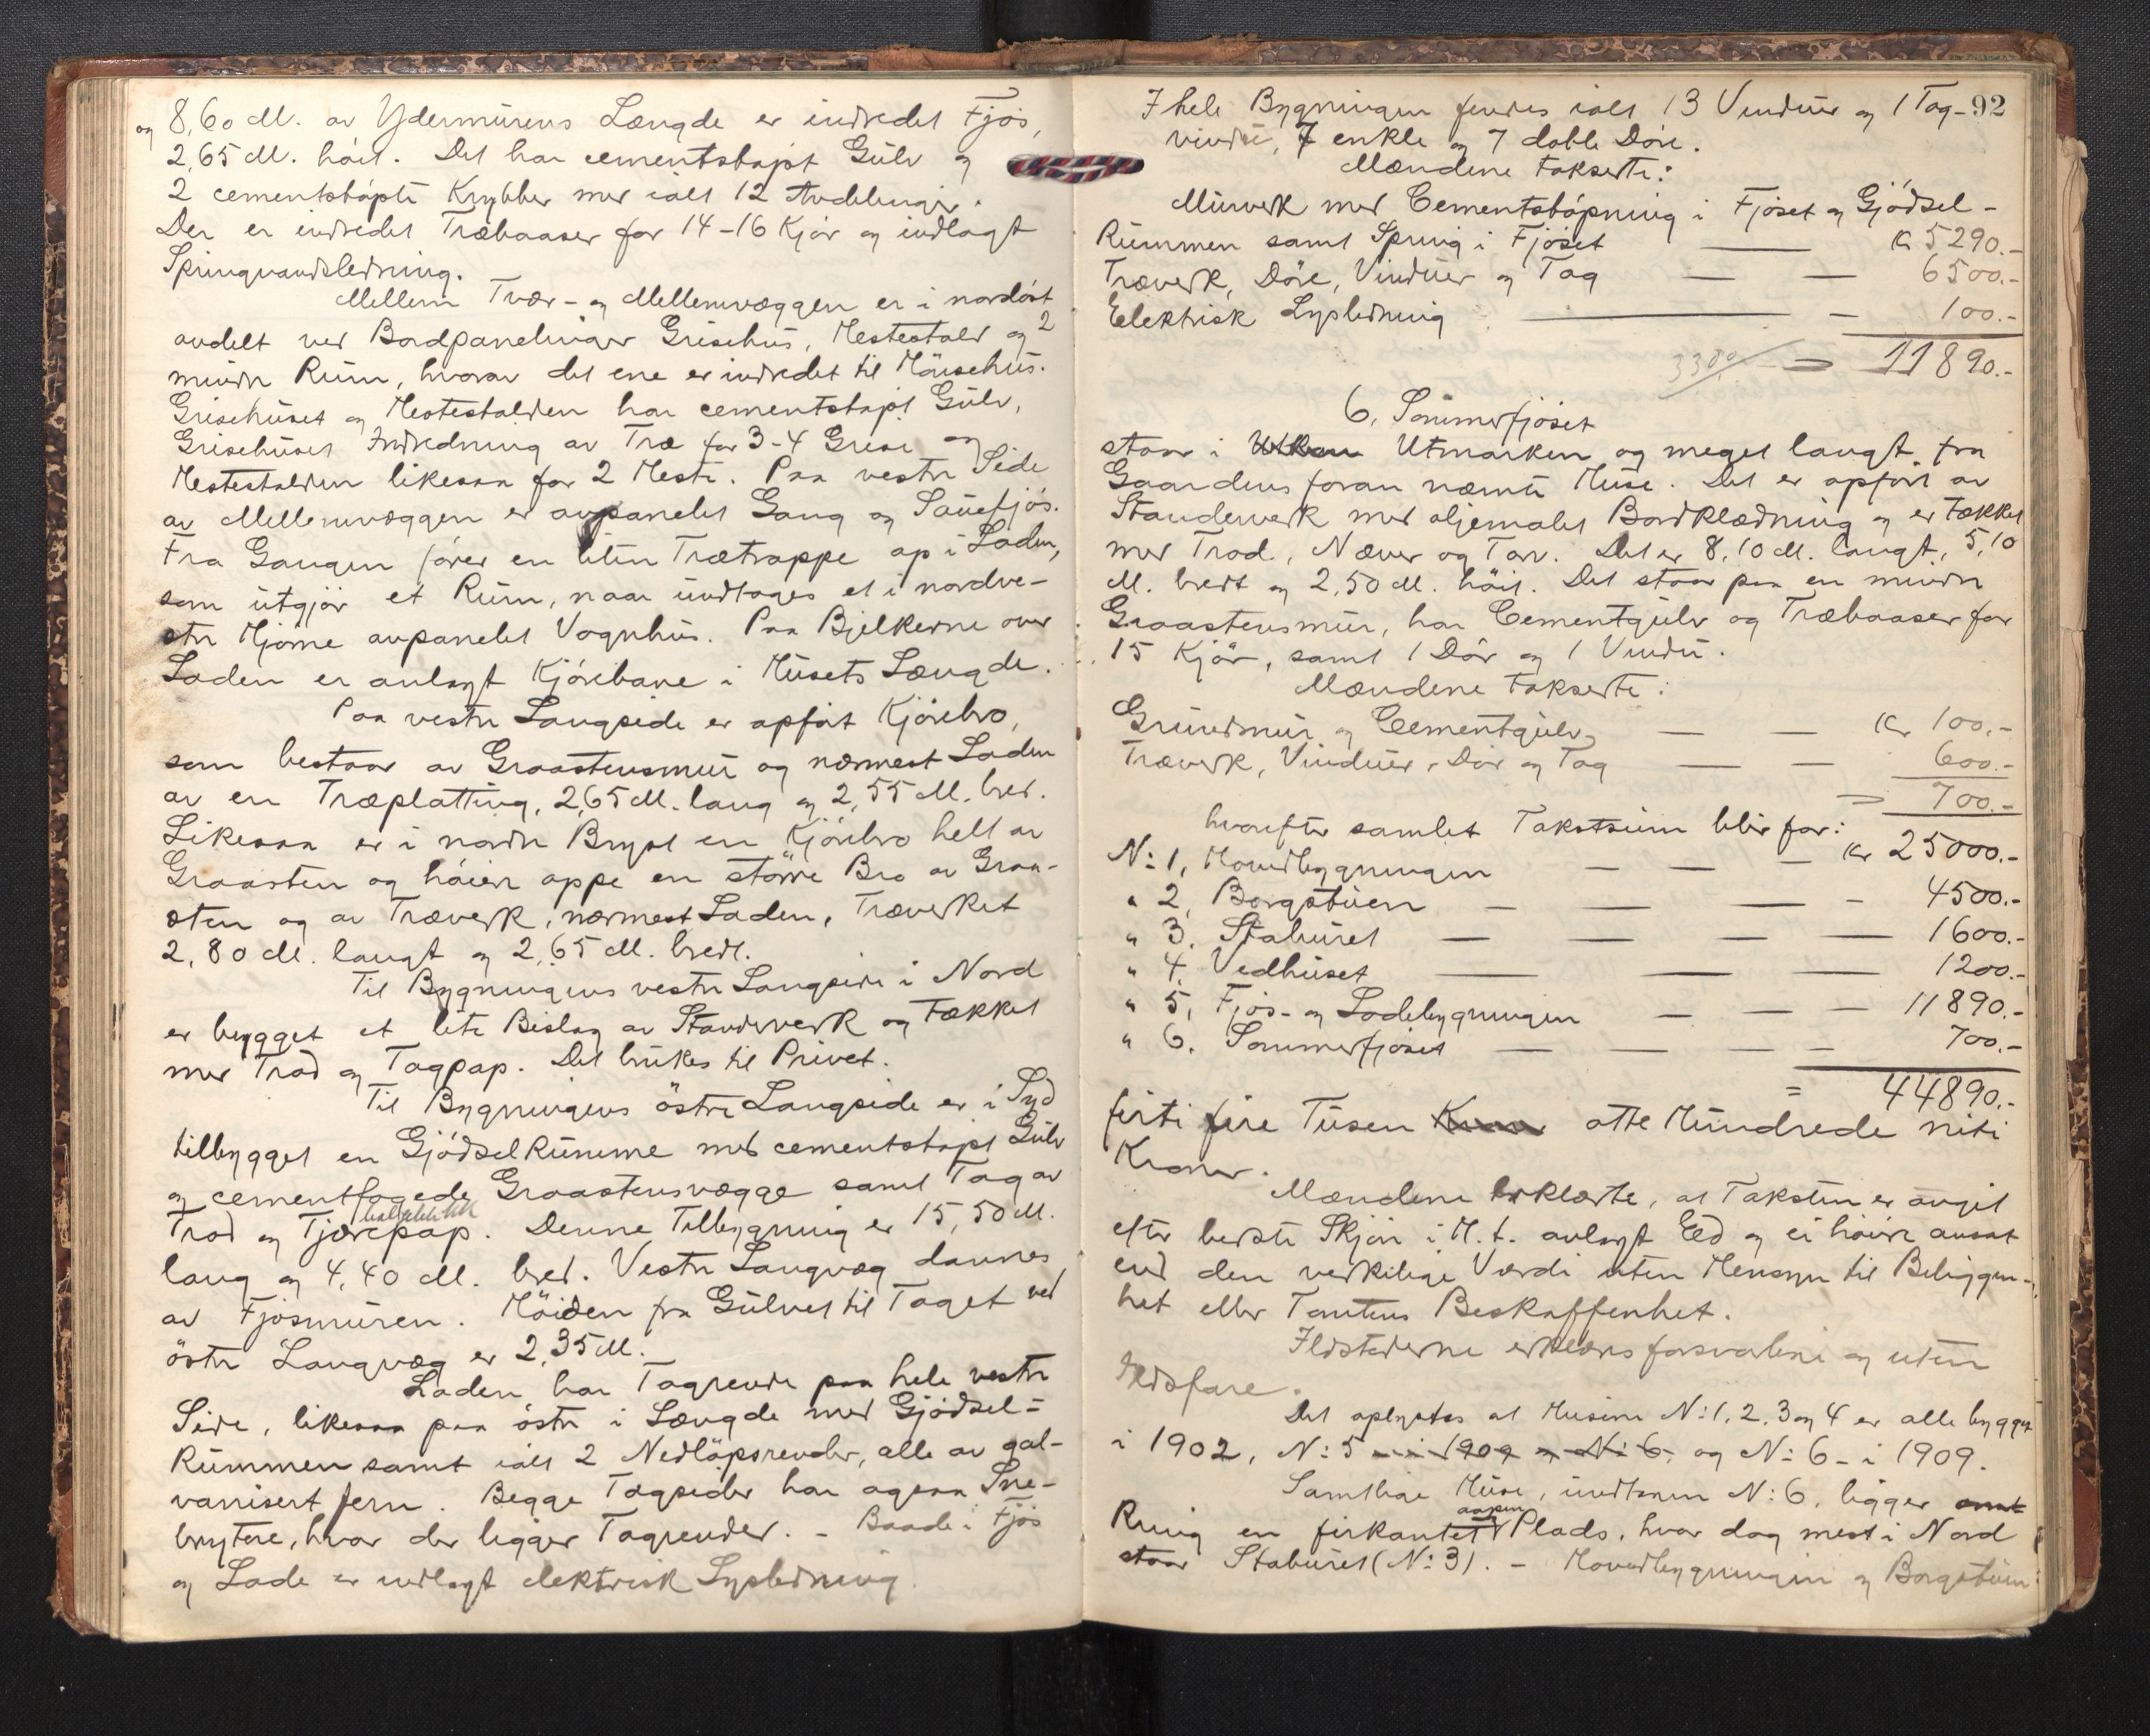 og 8,60 M. av Ydermurens Længde er indredet Fjøs,
2,65 M. høit. Det har cementstøpt Gulv og
2 cementstøpte Krybber med ialt 12 Avdelinger.
Der er indredet Træbaaser for 14-16 Kjør og indlagt
Springvandsledning.
Mellem Tvær- og Mellemvæggen er i nordøst
avdelt ved Bordpanelinger Grisehus, Hestestald og 2
mindre Rum, hvorav det ene er indredet til Hønsehus.
Grisehuset og Hestestalden har cementstøpt Gulv,
Grisehuset Indredning av Træ for 3-4 Grise og
Hestestalden likesaa for 2 Heste. Paa vestre Side
av Mellemvæggen er avpanelet Gang og Sauefjøs.
Fra Gangen fører en liten Trætrappe op i Laden,
som utgjør et Rum, naar undtages et i nordve-
stre Hjørne avpanelet Vognhus. Paa Bjelkerne over
Laden er anlagt Kjørebane i Husets Længde.
Paa vestre Langside er opført Kjørebro,
som bestaar av Graastensmur og nærmest Laden
av en Træplatting, 2,65 M. lang og 2,55 M. bred.
Likesaa er i nordre Bryst en Kjørebro helt av
Graasten og høiere oppe en større Bro av Graa-
sten og av Træverk, nærmest Laden, Træverket
2,80 M. langt og 2,65 M. bredt.
Til Bygningens vestre Langside i Nord
er bygget et lite Bislag av Stenderverk og tækket
med Trod og Tagpap. Det brukes til Privet.
Til Bygningens östre Langside er i Syd
tilbygget en Gjødselkumme med cementstøpt Gulv
og cementfogede Graastensvægge samt Tag av
Trod og Tjærepap. Denne Tilbygning er 15,50 M.
lang og 4,40 M. bred. Vestre Langvæg dannes
av Fjøsmuren. Höiden fra Gulvet til Taget ved
östre Langvæg er 2,35 M.
Laden har Tagrende paa hele vestre
Side, likesaa paa östre i Længde med Gjødsel=
Kummen samt ialt 2 Nedløpsrender, alle av gal-
vanisert Jern. Begge Tagsider har ogsaa Sne-
brytere, hvor der ligger Tagrender. - Baade i Fjøs
og Lade er indlagt elektrisk Lysledning.
92
I hele Bygningen findes ialt 13 Vinduer og 1 Tag-
vindu, 7 enkle og 7 doble Døre.
Mændene takserte:
Murverk med Cementstøpning i Fjøset og Gjødsel-
Kummen samt Spring i Fjøset — Kr 5290.-
Træverk, Döre, Vinduer og Tag — — 6500.-
Elektrisk Lysledning — — 100.-
3380 = 11890.-
6. Sommerfjöset
staar i Utmarken og meget langt fra
Gaardens foran nævnte Huse. Det er opført av
Stenderverk med oljemalet Bordklædning og er tækket
med Trod, Næver og Torv. Det er 8,10 M. langt, 5,10
M. bredt og 2,50 M. höit. Det staar paa en mindre
Graastensmur, har Cementgulv og Træbaaser for
15 Kjør, samt 1 Dør og 1 Vindu.
Mændene takserte:
Grundmur og Cementgulv — — Kr 100.-
Træverk, Vinduer, Dør og Tag — — 600.-
= 700.-
hvorefter samlet Takstsum blir for:
N: 1, Hovedbygningen — — — Kr 25000.-
" 2, Borgstuen — — — — 4500.-
" 3. Staburet — — — — 1600.-
" 4. Vedhuset — — — 1200.-
" 5, Fjøs- og Ladebygningen — — — 11890.-
" 6. Sommerfjøset — — — — 700.-
= 44890.-
firti fire Tusen otte Hundrede niti
Kroner.
Mændene erklærte, at Taksten er avgit
efter bedste Skjøn i H. t. avlagt Ed og ei höiere ansat
end den verkelige Værdi uten Hensyn til Beliggen-
het eller Tomtens Beskaffenhet.
Ildstederne erklæres forsvarlige og uten
Ildsfare.
Det oplystes at Husene N: 1, 2, 3 og 4 er alle bygget
i 1902, N: 5 - i 1909 og N: 6. og N: 6 - i 1909.
Samtlige Huse, undtagen N: 6, ligger omkt
Kring en firkantet aapen Plads, hvor dog mest i Nord
staar Staburet (N: 3). - Hovedbygningen og Borgstuen